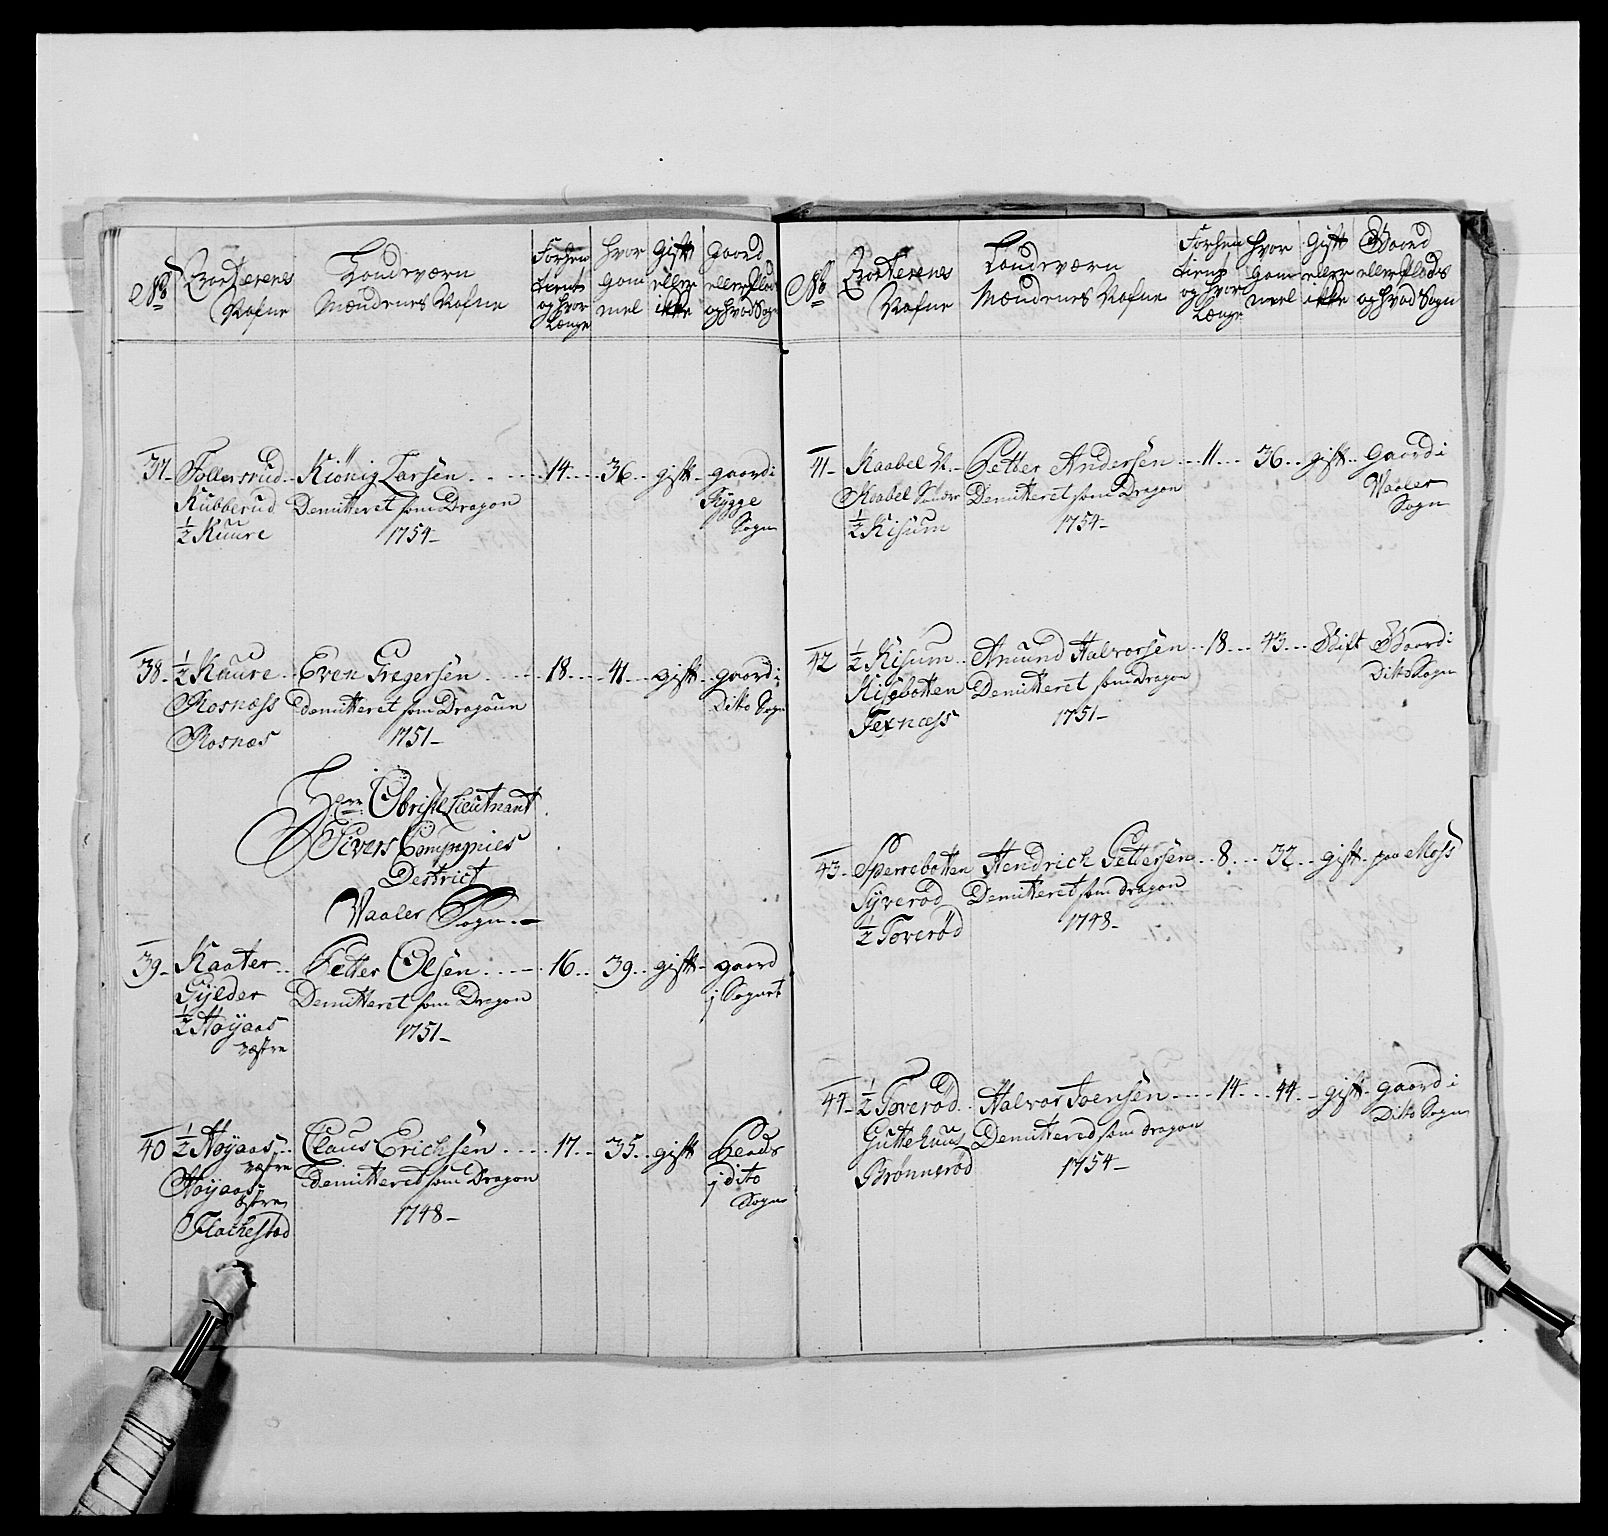 No Qvarterenes Nafne
Landeværn Mændenes Nafne
Forhen tient og hvor Længe
hvor gammel
Gift eller ikke
gaard eller plads og hvad Sogn
37 Follersrud Kiönig Larsen 14 36 gift gaard i
Kubberud Demitteret som Dragon Rygge
½ Kuure 1754 Sogn
38 ½ Kuure Even Gregersen 18 41 gift gaard i
Rosnæss demitteret som Dragoun Ditto Sogn
Rosnæs 1751
Herr Obriste Lieutnant
Sivers Compagnies
Destrict
Vaaler Sogn
39 Kaater Petter Olsen 16 39 gift gaard
Gylder Demitteret som Dragon j Sognet
½ Høyaas 1751
væstre
40 ½ Høyaas Claus Erichsen 17 35 gift
væstre demitteret som Dragon j dito
Høyaas Sogn
østre 1748
Flachestad
No Qvarterenes Nafne
Landeværn Mændenes Nafne
Forhen tient og hvor Længe
hvor gammel
Gift eller ikke
Gaard eller plads og hvad Sogn
41 Kaabel N. Petter Andersen 11 36 gift gaard i
Kaabel Søndr Demitteret som Dragon Vaaler
½ Kisum 1754 Sogn
42 ½ Kisum Amund Halvorsen 18 43 Gift Gaard i
Kisebotten Demitteret som Dragon Ditto Sogn
Texnæss 1751
43 Sperrebotten Hendrich Pettersen 8 32 gift paa Moss
Syverød Demitteret som dragon
½ Toverød 1748
44 ½ Toverød Halvor Joensen 14 44 gift gaard i
Guttehuus Demittered som dragon Ditto Sogn
Brønnerød 1754